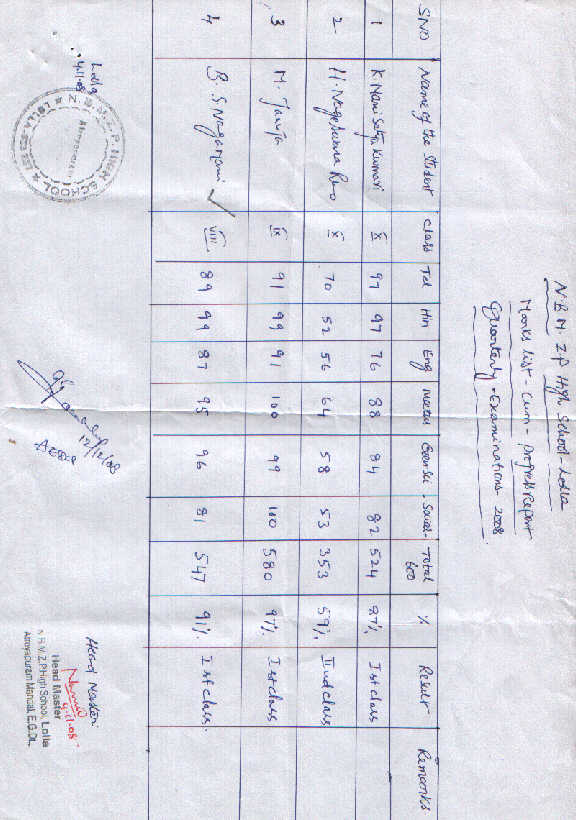 N.B.M. Z.P High School - Lolla
Marks list - Cum - Progress Report
Quarterly - Examinations - 2008.
SNO Name of the Student Class Tel Hin Eng Maths Gen.Sci. Social. Total 600 % Result Remarks
1 K. Mani Satya Kumari X 97 97 76 88 84 82 524 87% Ist class
2 H. Nageswara Rao X 70 52 56 64 58 53 353 59% IInd class
3 M. IX 91 99 91 100 99 100 580 97% Ist class
4 B. S Nagamani VIII 89 99 87 95 96 81 547 91% Ist class.
Lolla
4.11.08
N.B.M.Z.P. HIGH SCHOOL
LOLLA
12/12/08
Head Master
4.11.08
Head Master
N.B.M.Z.P.High School, Lolla
Atreyapuram Mandal, E.G.Dt.